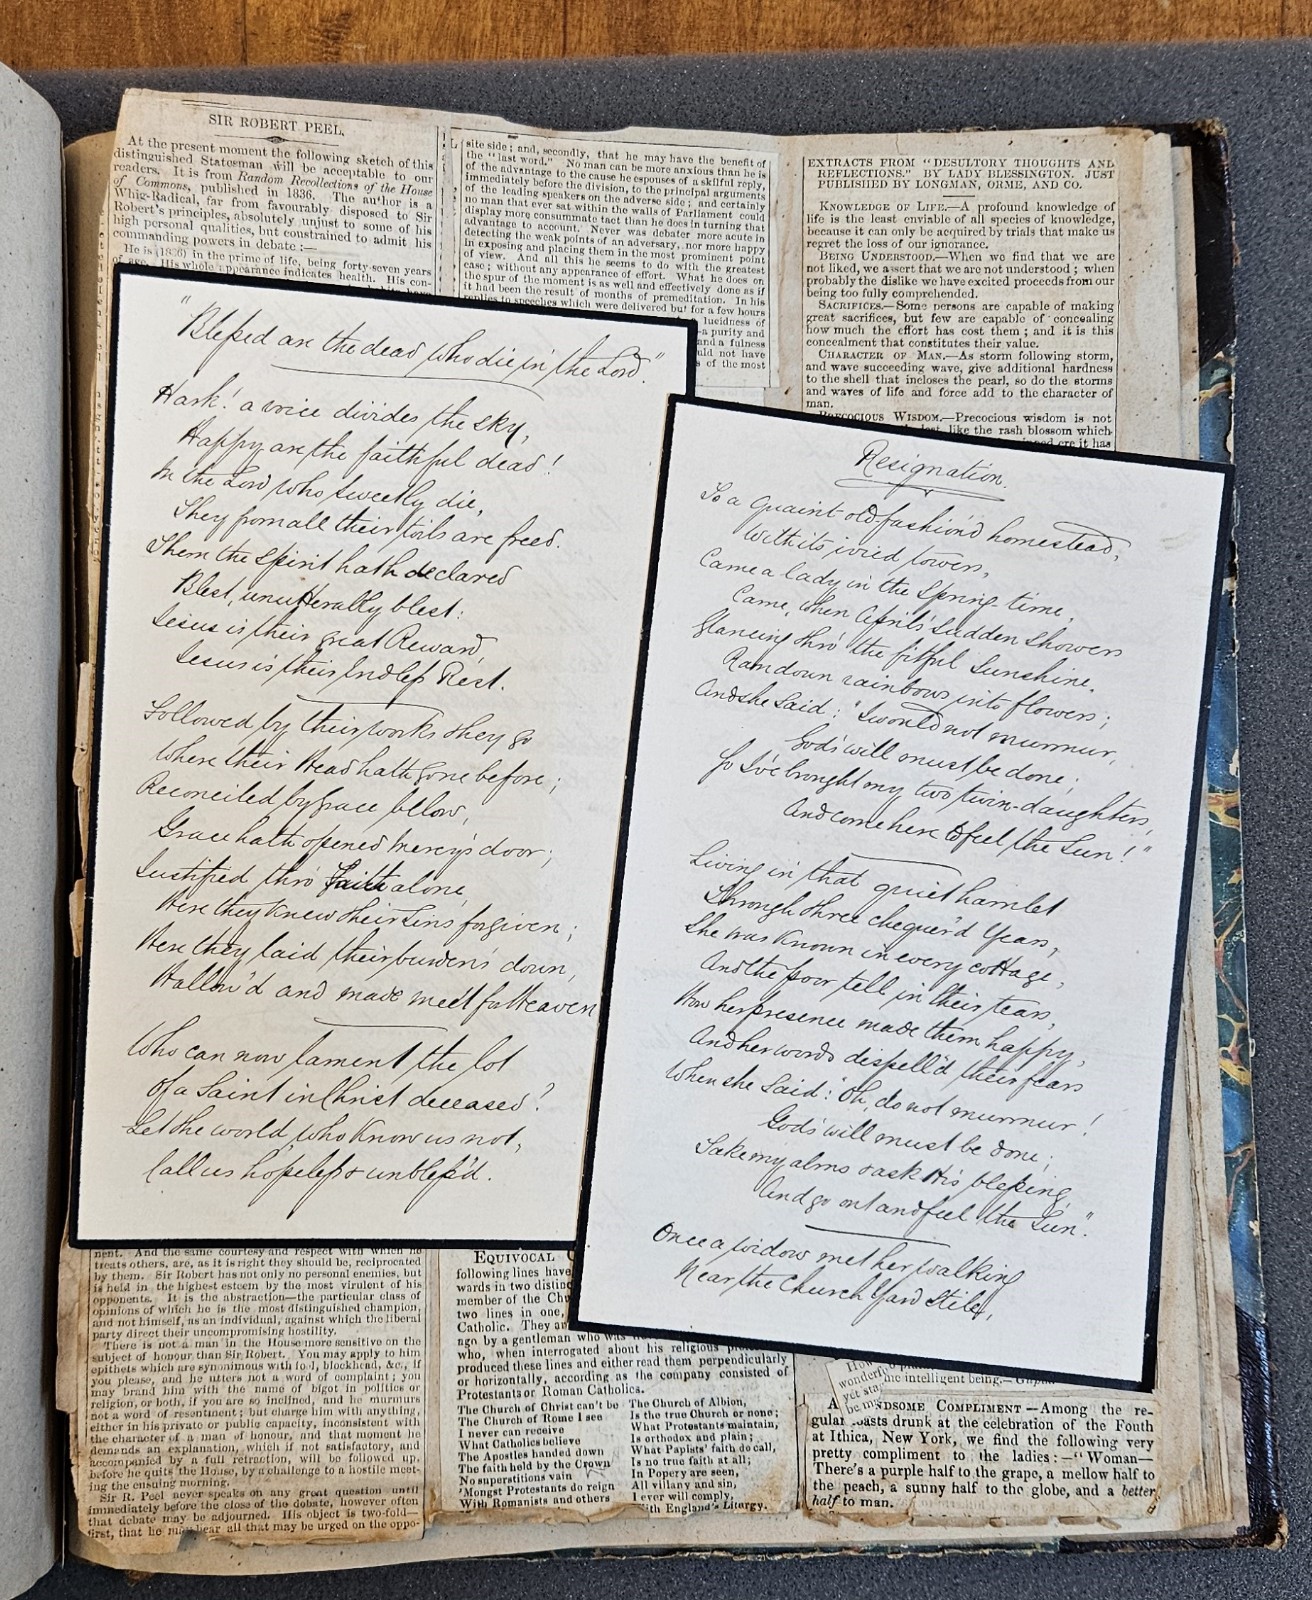 SIR ROBERT PEEL.
At the present moment the following sketch of this
distinguished Statesman will be acceptable to our
readers. It is from Random Recollections of the House
of Commons, published in 1836. The author is a
Whig-Radical, far from favourably disposed to Sir
Robert's principles, absolutely unjust to some of his
high personal qualities, but constrained to admit his
commanding powers in debate :—
He is (1836) in the prime of life, being forty-seven years
of age. His whole appearance indicates health. His con-
site side; and, secondly, that he may have the benefit of
the "last word." No man can be more anxious than he is
of the advantage to the cause he espouses of a skilful reply,
immediately before the division, to the principal arguments
of the leading speakers on the adverse side; and certainly
no man that ever sat within the walls of Parliament could
display more consummate tact than he does in turning that
advantage to account. Never was debater more acute in
detecting the weak points of an adversary, nor more happy
in exposing and placing them in the most prominent point
of view. And all this he seems to do with the greatest
case; without any appearance of effort. What he does on
the spur of the moment is as well and effectively done as if
it had been the result of months of premeditation. In his
replies to speeches which were delivered but for a few hours
lucidness of
—a purity and
and a fulness
uld not have
s of the most
EXTRACTS FROM "DESULTORY THOUGHTS AND
REFLECTIONS." BY LADY BLESSINGTON. JUST
PUBLISHED BY LONGMAN, ORME, AND CO.
KNOWLEDGE OF LIFE.—A profound knowledge of
life is the least enviable of all species of knowledge,
because it can only be acquired by trials that make us
regret the loss of our ignorance.
BEING UNDERSTOOD.—When we find that we are
not liked, we assert that we are not understood; when
probably the dislike we have excited proceeds from our
being too fully comprehended.
SACRIFICES.—Some persons are capable of making
great sacrifices, but few are capable of concealing
how much the effort has cost them; and it is this
concealment that constitutes their value.
CHARACTER OF MAN.—As storm following storm,
and wave succeeding wave, give additional hardness
to the shell that incloses the pearl, so do the storms
and waves of life and force add to the character of
man.
PRECOCIOUS WISDOM.—Precocious wisdom is not
like the rash blossom which
ere it has
"Blessed are the dead who die in the Lord."
Hark! a voice divides the sky,
Happy are the faithful dead!
In the Lord who sweetly die,
They from all their toils are freed.
Them the Spirit hath declared
Blest, unutterably blest:
Jesus is their great Reward,
Jesus is their Endless Rest.
Followed by their works they go
Where their Head hath gone before;
Reconciled by grace below,
Grace hath opened Mercy's door;
Justified thro' Faith alone,
Here they knew their sins forgiven;
Here they laid their burden's down,
Hallow'd and made meet for Heaven
Who can now lament the lot
Of a Saint in Christ deceased?
Let the world who know us not,
Call us hopeless & unbless'd.
Resignation.
To a quaint old-fashion'd homestead,
With its ivied towers,
Came a lady in the Spring-time,
Came, when April's sudden showers
Glancing thro' the fitful Sunshine.
Ram down rainbows into flowers;
And she said: "I would not murmur,
God's will must be done;
So I've brought my two twin-daughters,
And come here to feel the Sun!"
Living in that quiet hamlet
Through three chequer'd Years,
She was known in every cottage,
And the poor tell in their tears,
How her presence made them happy,
And her words dispell'd their fears
When she said: "Oh, do not murmur!
God's will must be done;
Take my alms & ask His blessing,
And go out and feel the Sun".
Once a widow met her walking
Near the Church Yard Stile,
nent. And the same courtesy and respect with which he
treats others, are, as it is right they should be, reciprocated
by them. Sir Robert has not only no personal enemies, but
is held in the highest esteem by the most virulent of his
opponents. It is the abstraction—the particular class of
opinions of which he is the most distinguished champion,
and not himself, as an individual, against which the liberal
party direct their uncompromising hostility.
There is not a man in the House more sensitive on the
subject of honour than Sir Robert. You may apply to him
epithets which are synonimous with fool, blockhead, &c., if
you please, and he utters not a word of complaint; you
may brand him with the name of bigot in politics or
religion, or both, if you are so inclined, and he murmurs
not a word of resentment; but charge him with anything,
either in his private or public capacity, inconsistent with
the character of a man of honour, and that moment he
demands an explanation, which if not satisfactory, and
accompanied by a full retraction, will be followed up,
before he quits the House, by a challenge to a hostile meet-
ing the ensuing morning.
Sir R. Peel never speaks on any great question until
immediately before the close of the debate, however often
that debate may be adjourned. His object is two-fold—
first, that he may hear all that may be urged on the oppo-
EQUIVOCAL
following lines have
wards in two distinc
member of the Chu
two lines in one,
Catholic. They
ago by a gentleman who was
who, when interrogated about his religious
produced these lines and either read them perpendicularly
or horizontally, according as the company consisted of
Protestants or Roman Catholics.
The Church of Christ can't be
The Church of Rome I see
I never can receive
What Catholics believe
The Apostles handed down
The faith held by the Crown
No superstitions vain
'Mongst Protestants do reign
With Romanists and others
The Church of Albion,
Is the true Church or none;
What Protestants maintain,
Is orthodox and plain;
What Papists' faith do call,
Is no true faith at all;
In Popery are seen,
All villany and sin,
I ever will comply,
ith England's Liturgy.
wonderf
yet sta
be m
the intelligent being.—
A NDSOME COMPLIMENT—Among the re-
gular toasts drunk at the celebration of the Fouth
at Ithica, New York, we find the following very
pretty compliment to the ladies:—"Woman—
There's a purple half to the grape, a mellow half to
the peach, a sunny half to the globe, and a better
half to man.